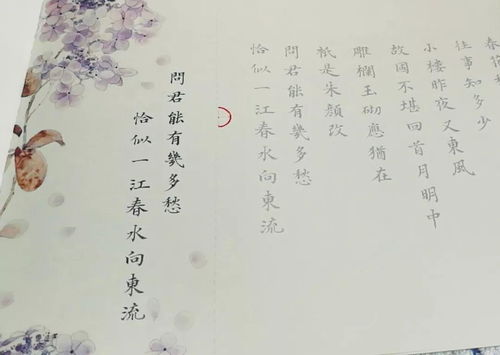 往事知多少
小樓昨夜又東風
故国不堪回首月明中
雕欄玉砌應猶在
衹是朱顔改
問君能有幾多愁
恰似一江春水向東流
問君能有幾多愁
恰似一江春水向東流